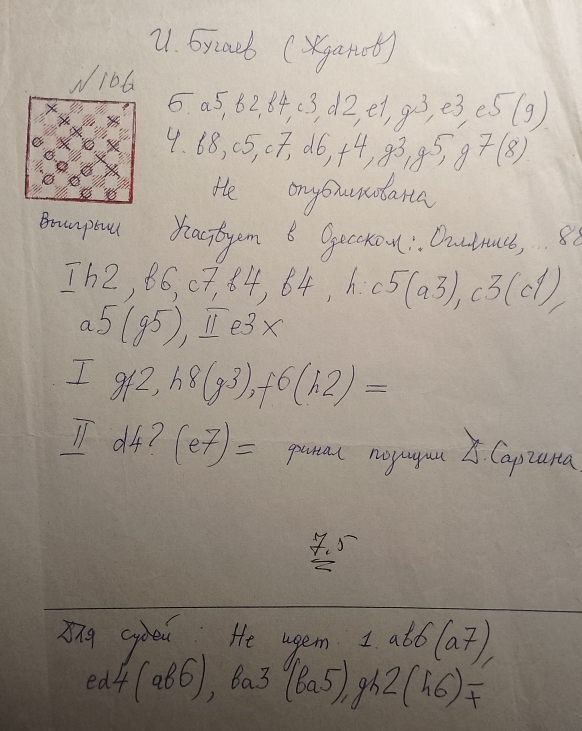 И. Бугаев (Жданов)
N 166
Б. а5, в2, в4, с3, d2, е1, g3, е3, е5 (9)
Ч. в8, с5, с7, d6, f4, g3, g5, g7 (8)
Не опубликована
Выигрыш
Участвует в Одесском: Оглянись, ... 88
I h2, в6, с7, в4, в4, h:с5(а3), с3(с1),
а5(g5), II е3 х
I gf2, h8(g3), f6(h2) =
II d4? (е7) = финал позиции Д. Саргина.
7,5
Для судей: Не идет 1. ав6 (а7),
ed4 (ав6), ва3 (ва5), gh2 (h6) ∓